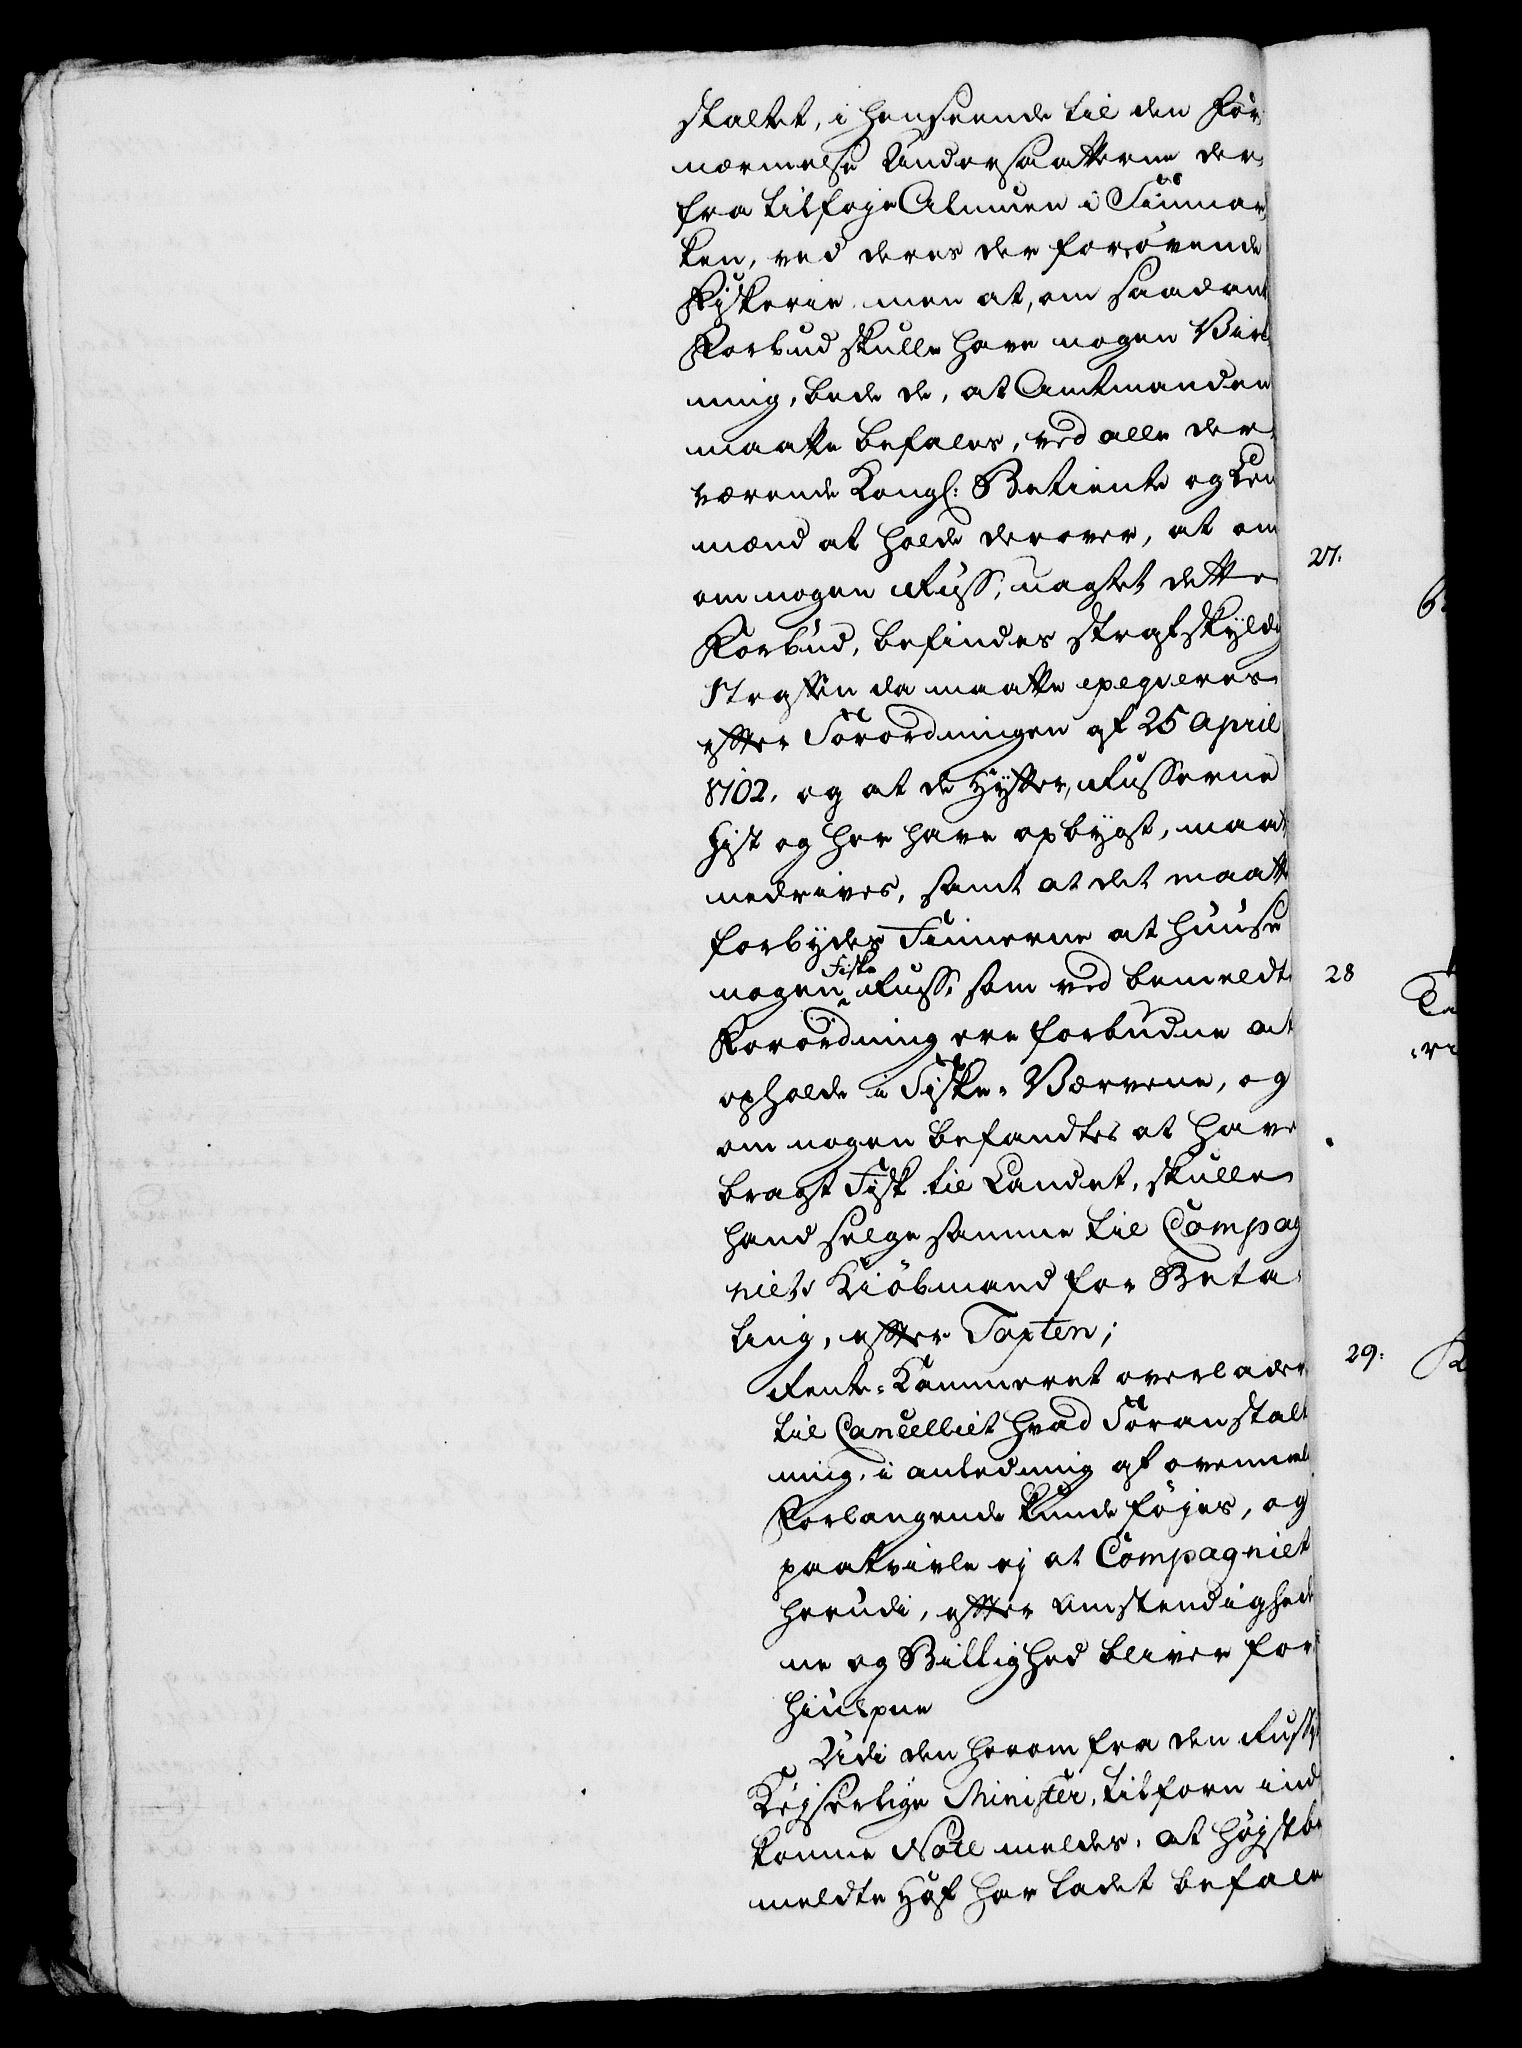 staltet, i henseende til den For¬
nærmelse Undersaatterne der¬
fra tilføje Almuen i Finmar¬
ken, ved deres der forøvende
Fiskerie men at, om saadant
Forbud skulle have nogen Virk
ning, bede de, at Amtmanden
maatte befales, ved alle der¬
værende Kongl: Betiente og Len
mænd at holde derover, at om
om nogen Russ, uagtet dette
Forbud, befindes strafskyldig
Straffen da maatte exeqveres
efter Forordningen af 25 April
1702. og at de Hytter, Russerne
hist og her have opbygt, maat
nedrives, samt at det maatte
forbydes Finnerne at huuse
nogen Fiske Russ, som ved bemeldte
Forordning ere forbudne at
opholde i Fiske-Værene, og
om nogen befandtes at have
bragt Fisk til Landet, skulle
hand selge samme til Compag
niets Kiöbmand for Beta¬
ling, efter Taxten;
Rente-Kammeret overlader
til Cancelliet hvad Foranstalt
ning, i anledning af ovenmel
Forlangende kunde føjes, og
paatvivle ej at Compagniet
herudi, efter Omstendighede
ne og Billighed bliver for
hiulpne
Udi den herom fra den Russis
Kejserlige Minister, tilforn ind
komne Note meldes, at højstbe
meldte Hof har ladet befale
27.
28
29: